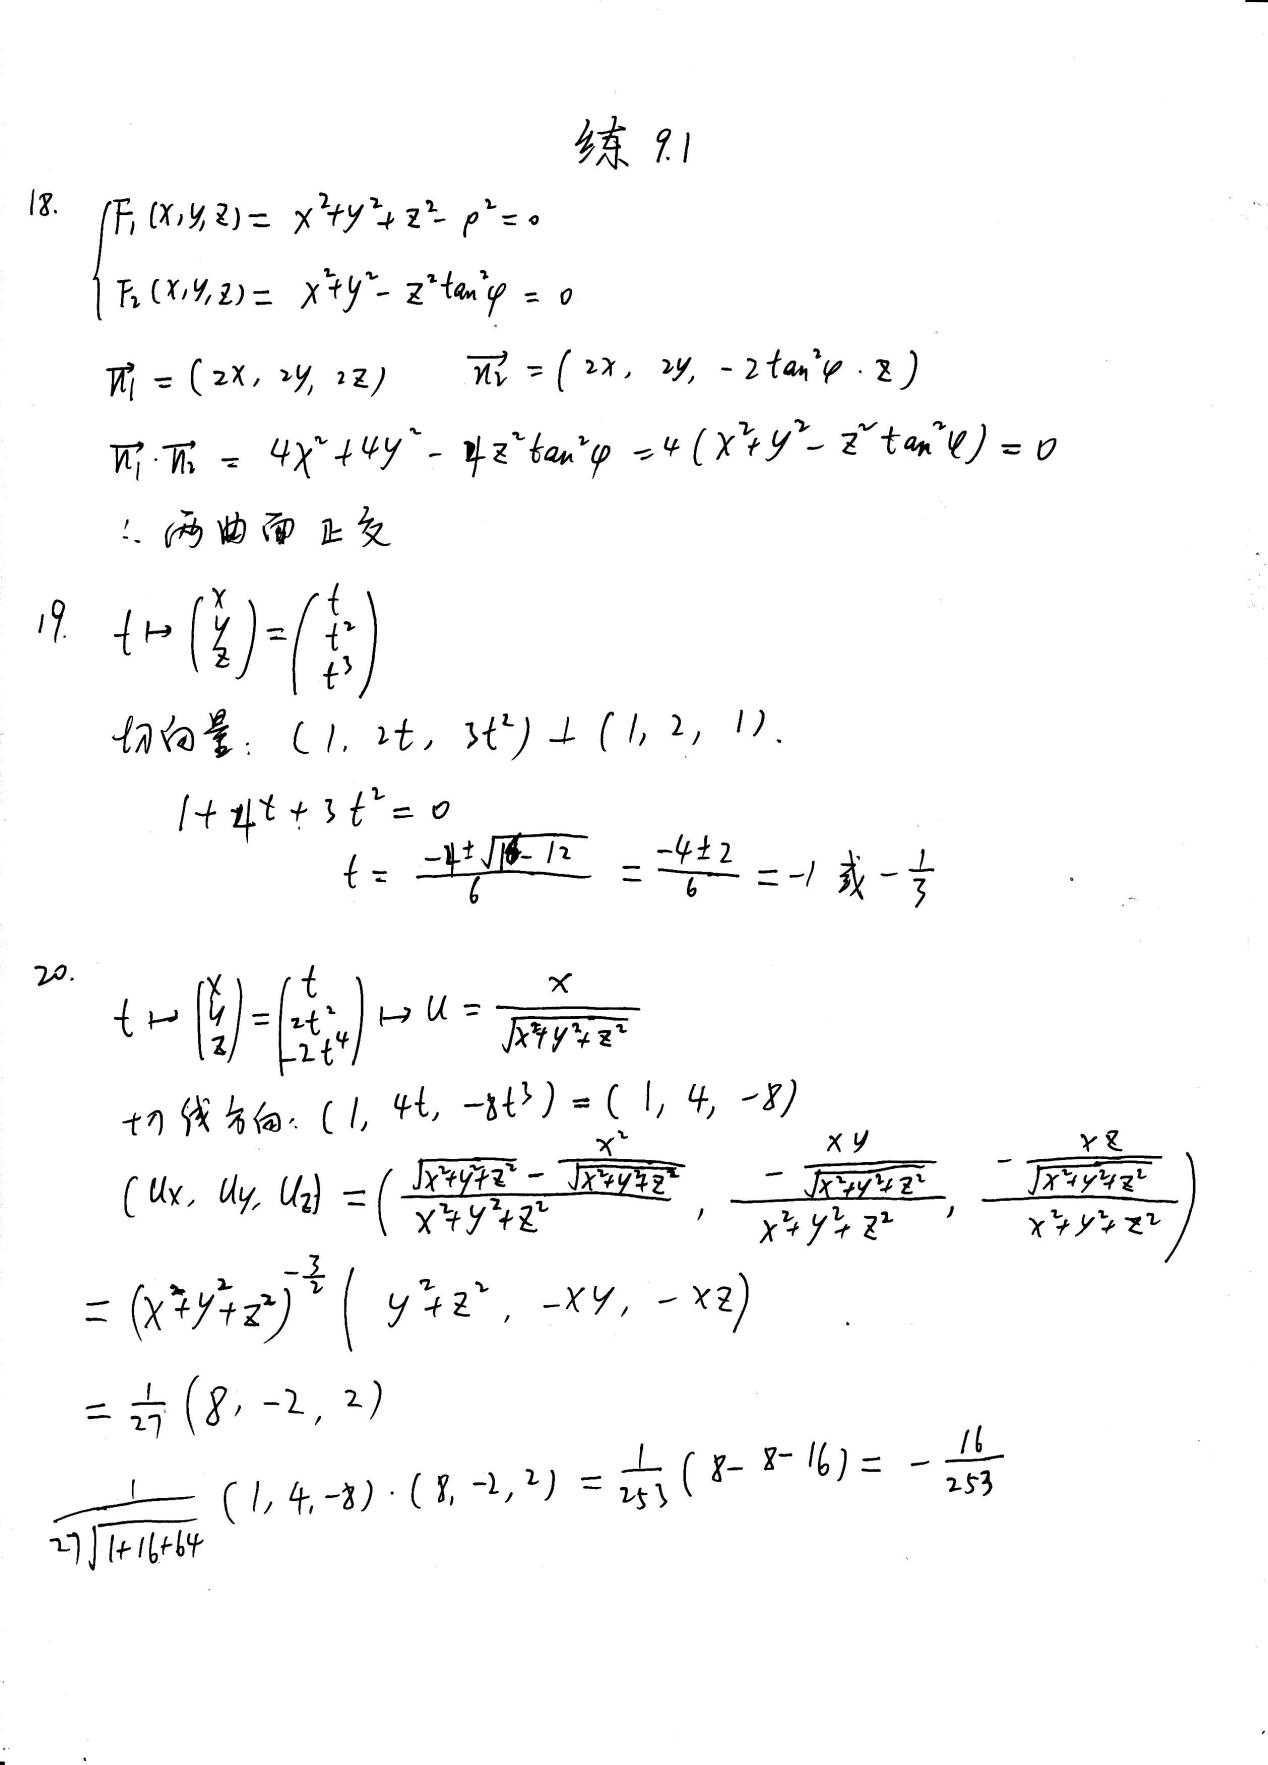 练 9.1
18. { F₁(x,y,z) = x²+y²+z²-ρ²=0
F₂(x,y,z) = x²+y²-z²tan²φ = 0
n₁⃗ = (2x, 2y, 2z)    n₂⃗ = (2x, 2y, -2tan²φ·z)
n₁⃗·n₂⃗ = 4x²+4y²-4z²tan²φ = 4(x²+y²-z²tan²φ) = 0
∴ 两曲面正交
19. t↦(x y z) = (t t² t³)
切向量: (1, 2t, 3t²) ⊥ (1, 2, 1).
1+4t+3t²=0
t = (-4±√(16-12))/6 = (-4±2)/6 = -1 或 -1/3
20. t↦(x y z) = (t 2t² -2t⁴) ↦ u = x/√(x²+y²+z²)
切线方向: (1, 4t, -8t³) = (1, 4, -8)
(ux, uy, uz) = ((√(x²+y²+z²) - x²/√(x²+y²+z²))/(x²+y²+z²), -(xy/√(x²+y²+z²))/(x²+y²+z²), -(xz/√(x²+y²+z²))/(x²+y²+z²))
= (x²+y²+z²)^(-3/2) (y²+z², -xy, -xz)
= 1/27 (8, -2, 2)
1/(27√(1+16+64)) (1, 4, -8)·(8, -2, 2) = 1/253 (8-8-16) = -16/253